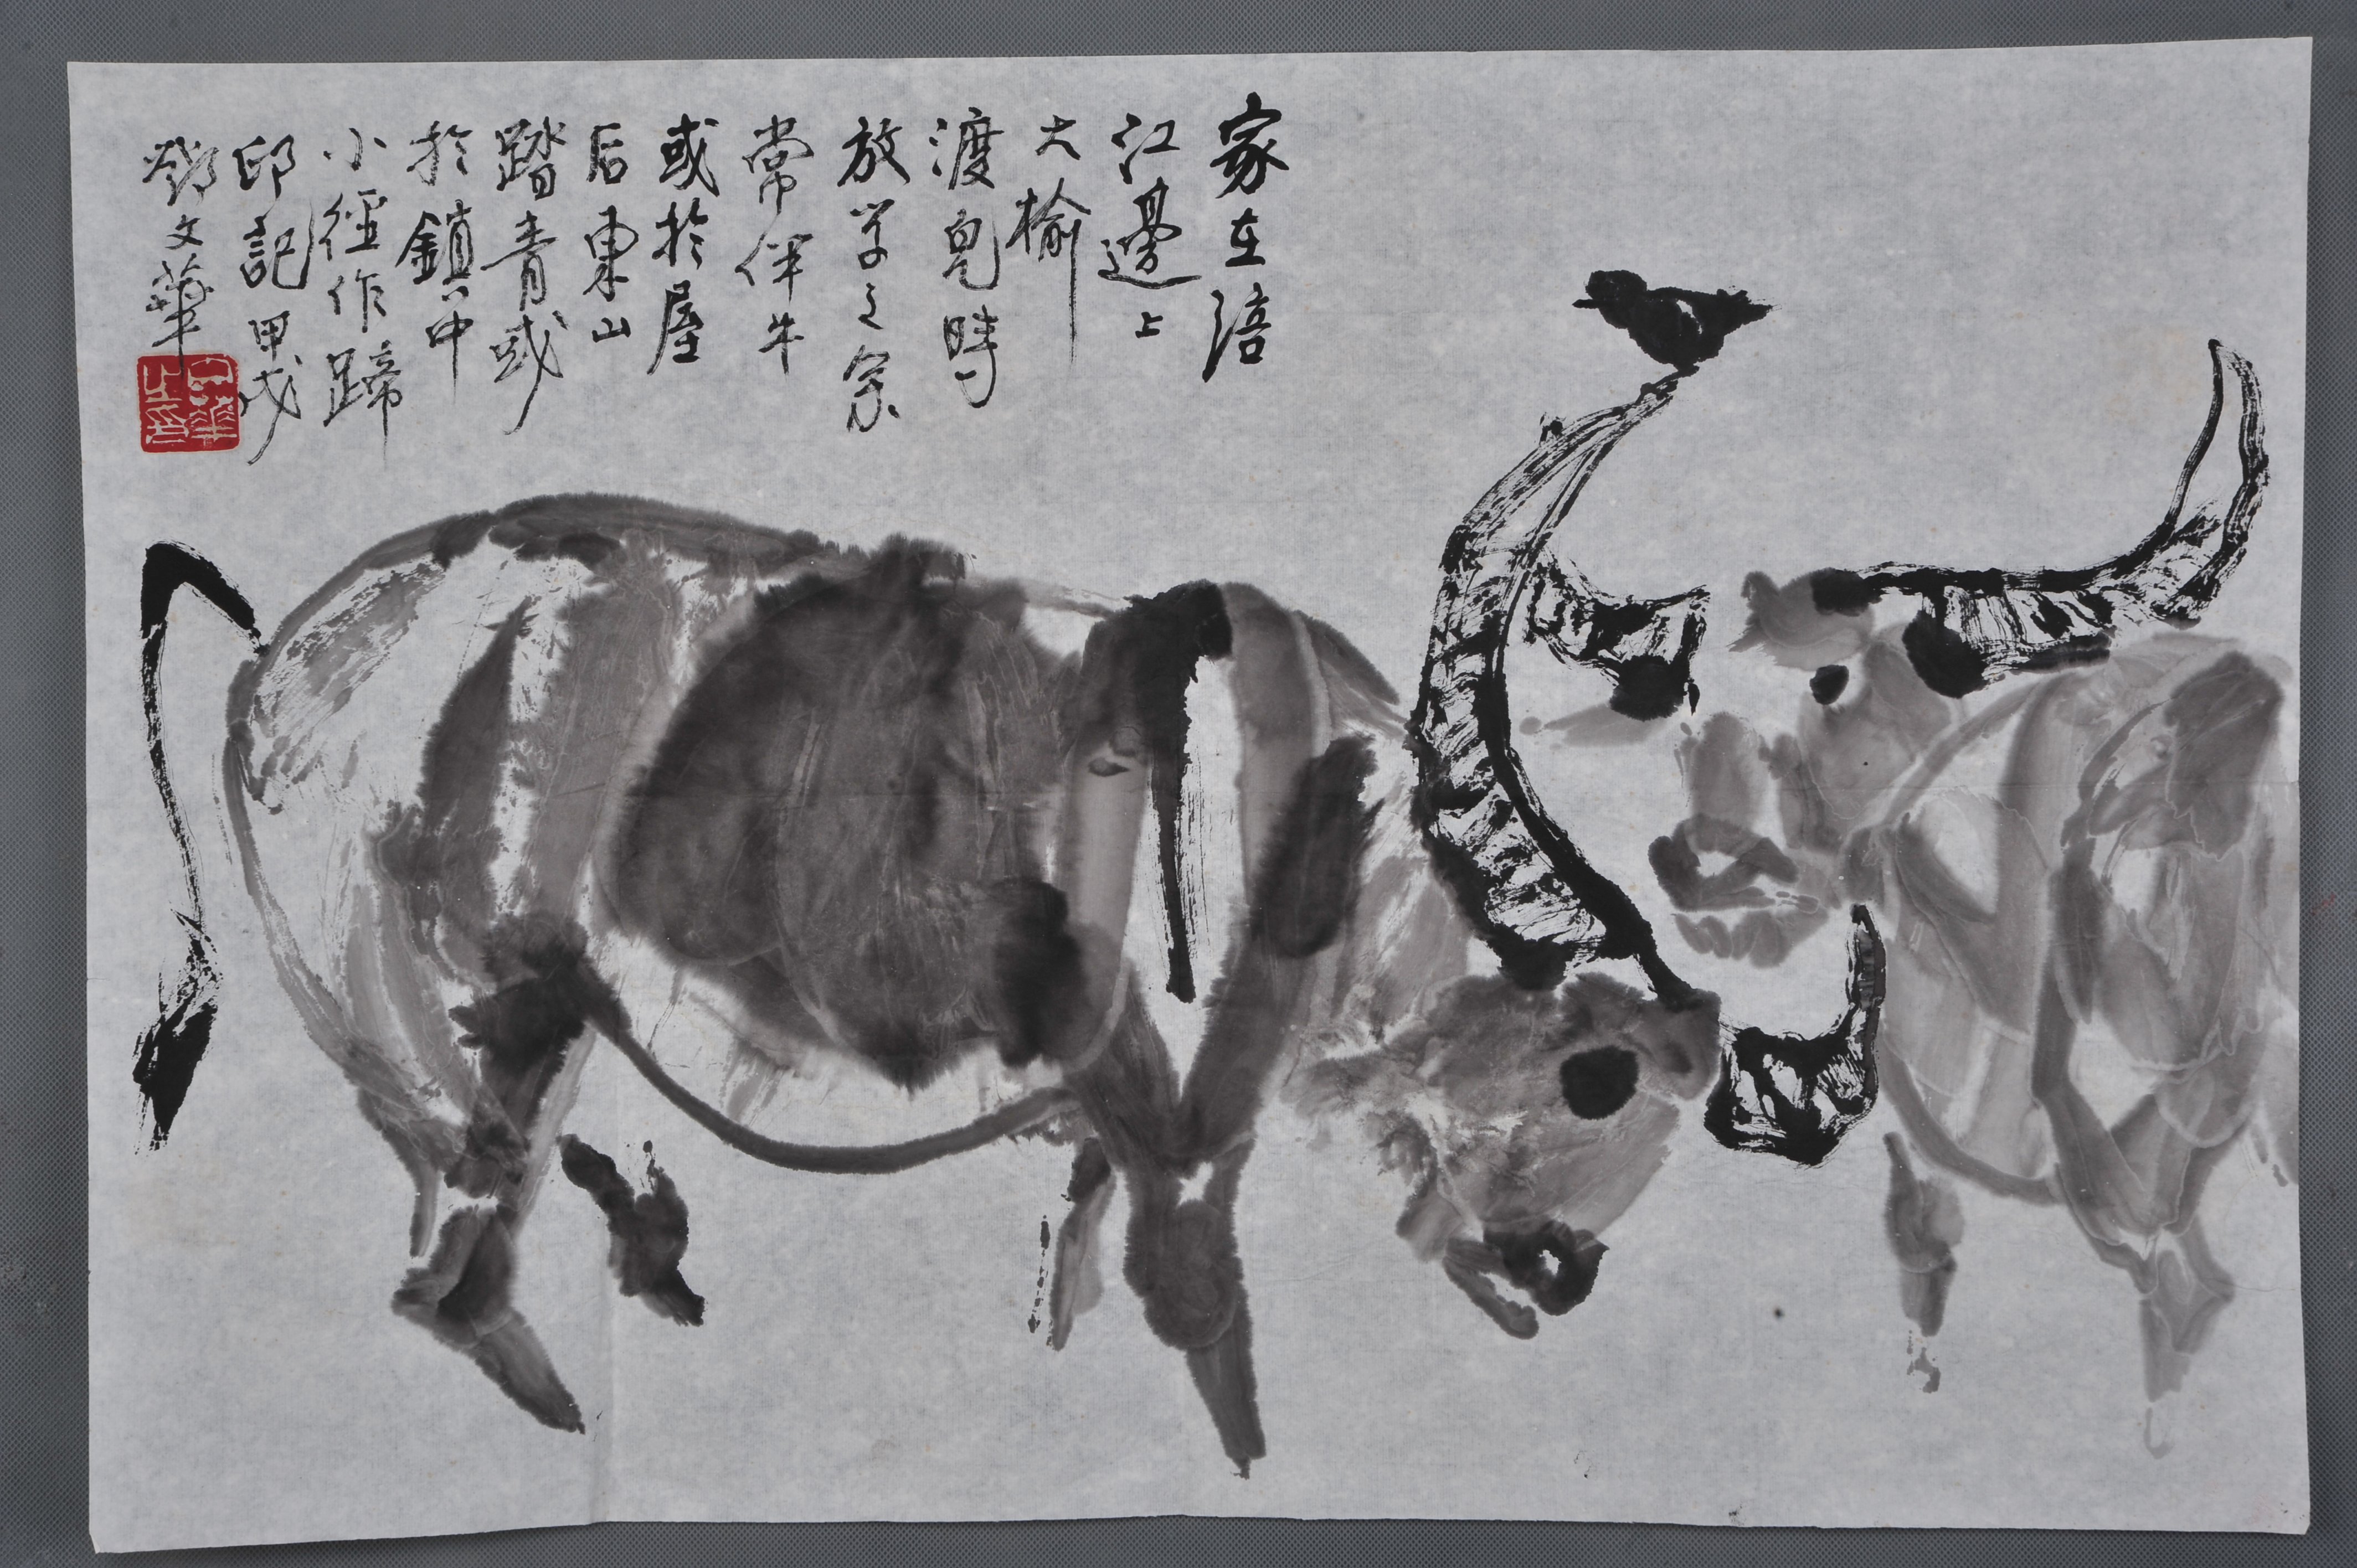 家在涪
江邊上
大榆
渡兒時
放学之余
常伴牛
或於屋
后東山
踏青或
於鎮中
小徑作蹄
印記甲戌
鄧文華
文華之印